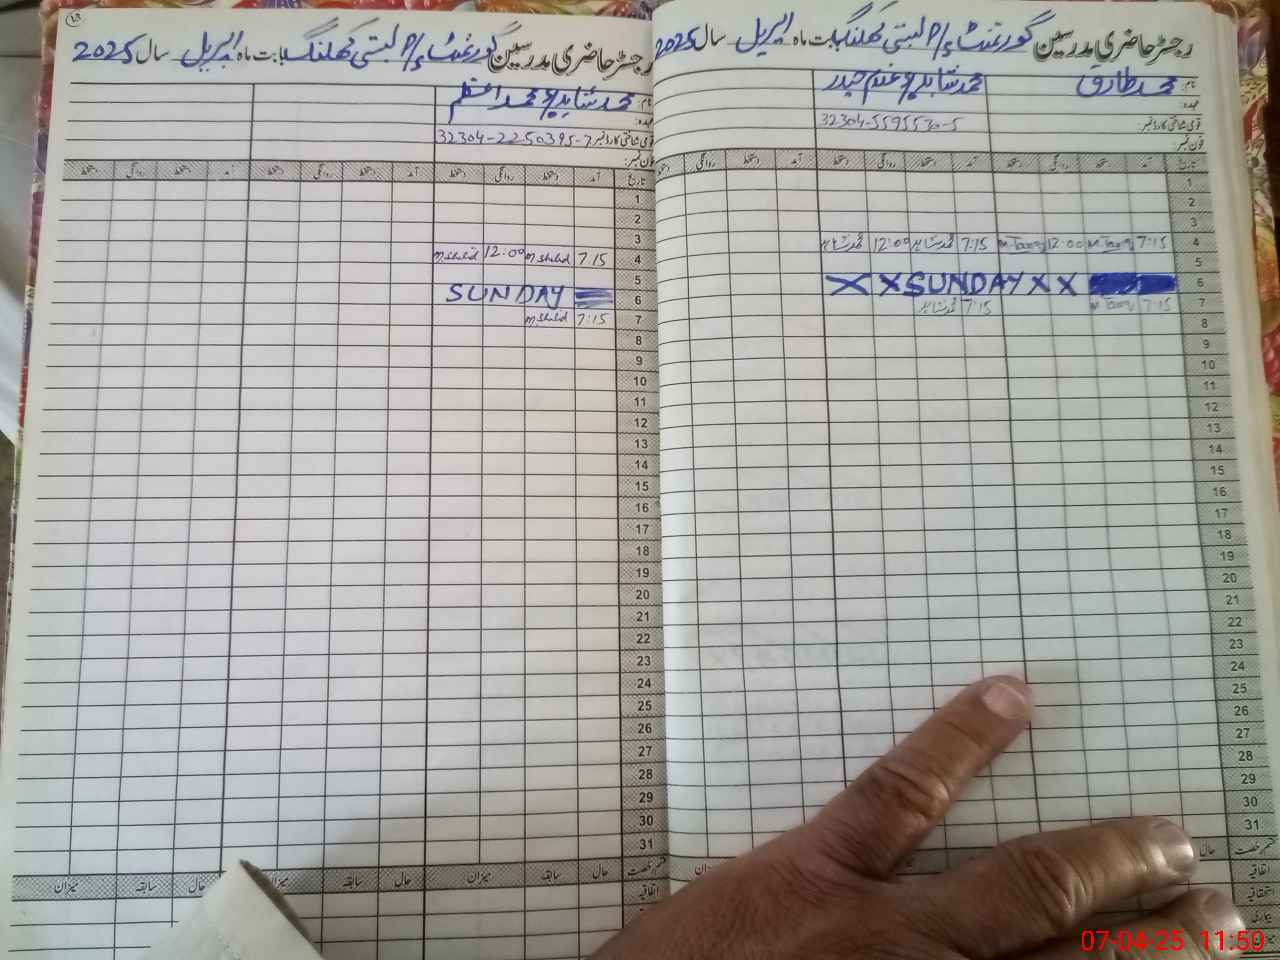 رجسٹر حاضری مدرسین گورنمنٹ P/S بستی کھلنگ بابت ماہ اپریل سال 2025
نام: محمد طارق محمد شاہد غلام حیدر
عہدہ:
قومی شناختی کارڈ نمبر: 32304-5595530-5
فون نمبر:
تاریخ آمد دستخط روانگی دستخط آمد دستخط روانگی دستخط آمد دستخط روانگی دستخط
1
2
3
4 7:15 M.Tariq 12:00 M.Tariq 7:15 محمد شاہد 12:00 محمد شاہد
5
6 X X SUNDAY X X
7 7:15 M.Tariq 7:15 محمد شاہد
8
9
10
11
12
13
14
15
16
17
18
19
20
21
22
23
24
25
26
27
28
29
30
31
قسم رخصت حال
اتفاقیہ
استحقاقیہ
بیماری
18
رجسٹر حاضری مدرسین گورنمنٹ P/S بستی کھلنگ بابت ماہ اپریل سال 2025
نام: محمد شاہد محمد اعظم
عہدہ:
قومی شناختی کارڈ نمبر 32304-2250395-7
فون نمبر:
تاریخ آمد دستخط روانگی دستخط آمد دستخط روانگی دستخط آمد دستخط روانگی دستخط
1
2
3
4 7:15 m shahid 12:00 m shahid
5
6 SUNDAY
7 7:15 m shahid
8
9
10
11
12
13
14
15
16
17
18
19
20
21
22
23
24
25
26
27
28
29
30
31
قسم رخصت حال سابقہ میزان حال سابقہ میزان حال سابقہ میزان
اتفاقیہ
07-04-25 11:50